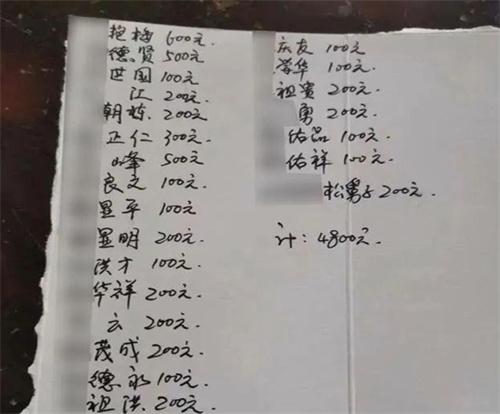 艳梅 600元.
德贤 500元
世国 100元
江 200元.
朝栋. 200元.
正仁 300元.
峰 500元
良文 100元.
显平 100元
显明 200元.
洪才 100元.
华祥 200元.
云 200元.
茂成 200元.
德永 100元.
祖洪. 200元.
庆友 100元
荣华 100元.
祖贵 200元.
勇 200元.
佑品 100元.
佑祥 100元.
松 200元.
计: 4800元.